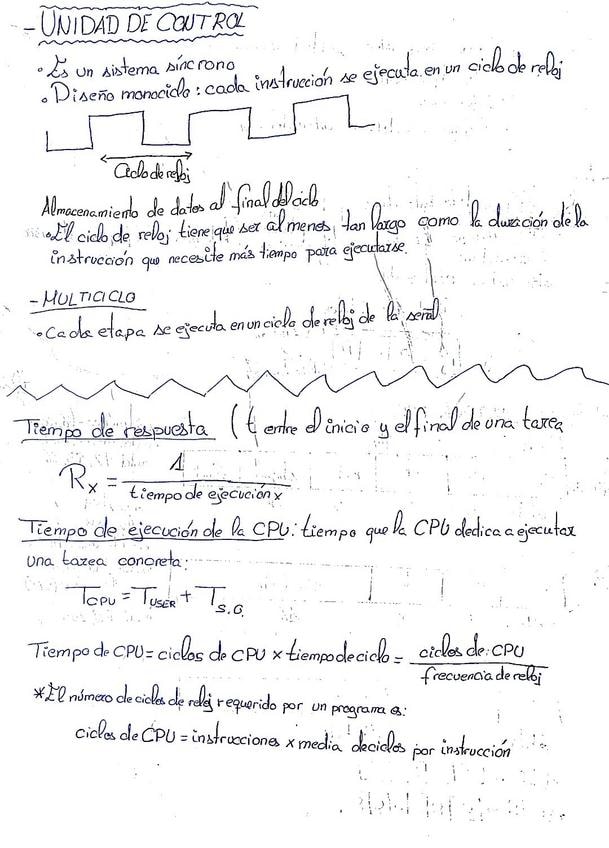 - UNIDAD DE CONTROL
• Es un sistema síncrono
• Diseño monociclo: cada instrucción se ejecuta en un ciclo de reloj
Ciclo de reloj
Almacenamiento de datos al final del ciclo
• El ciclo de reloj tiene que ser al menos tan largo como la duración de la
instrucción que necesite más tiempo para ejecutarse.
- MULTICICLO
• Cada etapa se ejecuta en un ciclo de reloj de la señal
Tiempo de respuesta (t entre el inicio y el final de una tarea
Rx = 1 / tiempo de ejecución x
Tiempo de ejecución de la CPU: tiempo que la CPU dedica a ejecutar
una tarea concreta:
TCPU = TUSER + TS.O.
Tiempo de CPU = ciclos de CPU x tiempo de ciclo = ciclos de CPU / frecuencia de reloj
* El número de ciclos de reloj requerido por un programa es:
ciclos de CPU = instrucciones x media de ciclos por instrucción